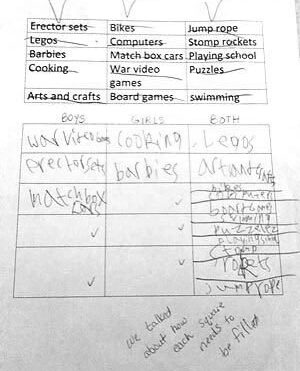 Erector sets Bikes Jump rope
Legos Computers Stomp rockets
Barbies Match box cars Playing school
Cooking War video games Puzzles
Arts and crafts Board games swimming
BOYS GIRLS BOTH
war video games cooking Legos
erectorsets barbies art ants crafts
matchbox cars bikes
computers
boardgames
swimming
puzzelez
playingschool
stomp
rokets
jumprope
we talked
about how
each square
needs to
be filled